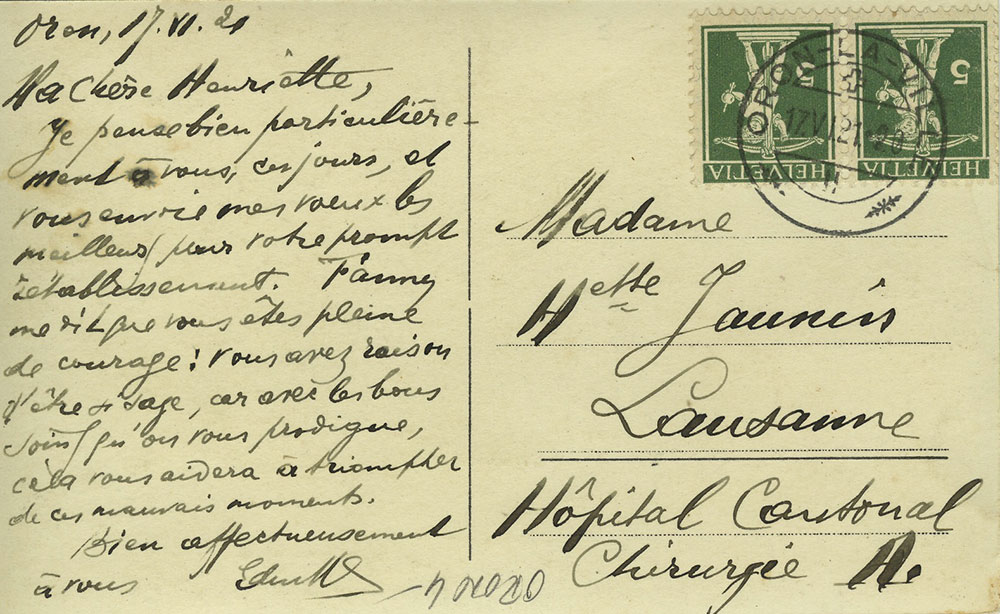 Oron, 17.VI.21
Ma chère Henriette,
Je pense bien particulière-
ment à vous, ces jours, et
vous envoie mes voeux les
meilleurs pour votre prompt
rétablissement. Fanny
me dit que vous êtes pleine
de courage! Vous avez raison
d'être si sage, car avec les bons
soins qu'on vous prodigue,
cela vous aidera à triompher
de ces mauvais moments.
Bien affectueusement
à vous
ORON-LA-VILLE
17.VI.21
5
5
HELVETIA
HELVETIA
Madame
Hette Jaunin
Lausanne
Hôpital Cantonal
Chirurgie